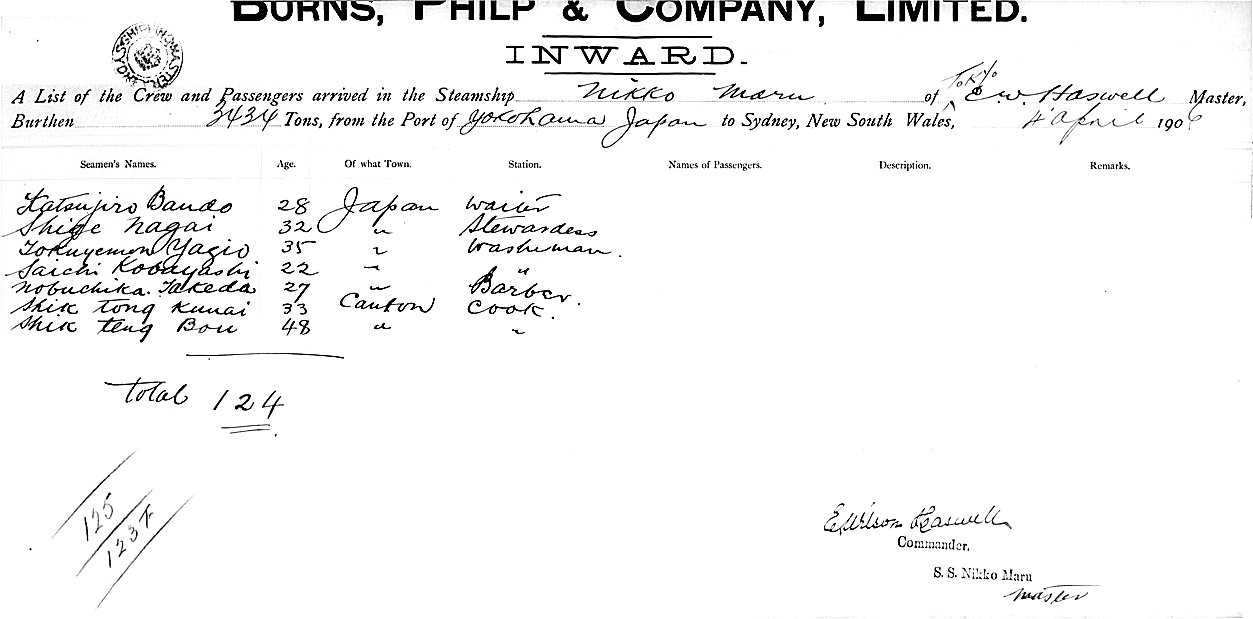 BURNS, PHILP & COMPANY, LIMITED.
INWARD.
A List of the Crew and Passengers arrived in the Steamship Nikko Maru of Tokyo E. W. Haswell Master,
Burthen 3434 Tons, from the Port of Yokohama Japan to Sydney, New South Wales, 4 April 1906
Seamen's Names. Age. Of what Town. Station. Names of Passengers. Description. Remarks.
Katsujiro Bando 28 Japan Waiter
Shige Nagai 32 " Stewardess
Tokuyemon Yagio 35 " Washman.
Saichi Kobayashi 22 " "
Nobuchika Takeda 27 " Barber.
Shik Tong Kunai 33 Canton Cook.
Shik Teng Bou 48 " "
Total 124
125
123
E Wilson Haswell
Commander.
S. S. Nikko Maru
Master